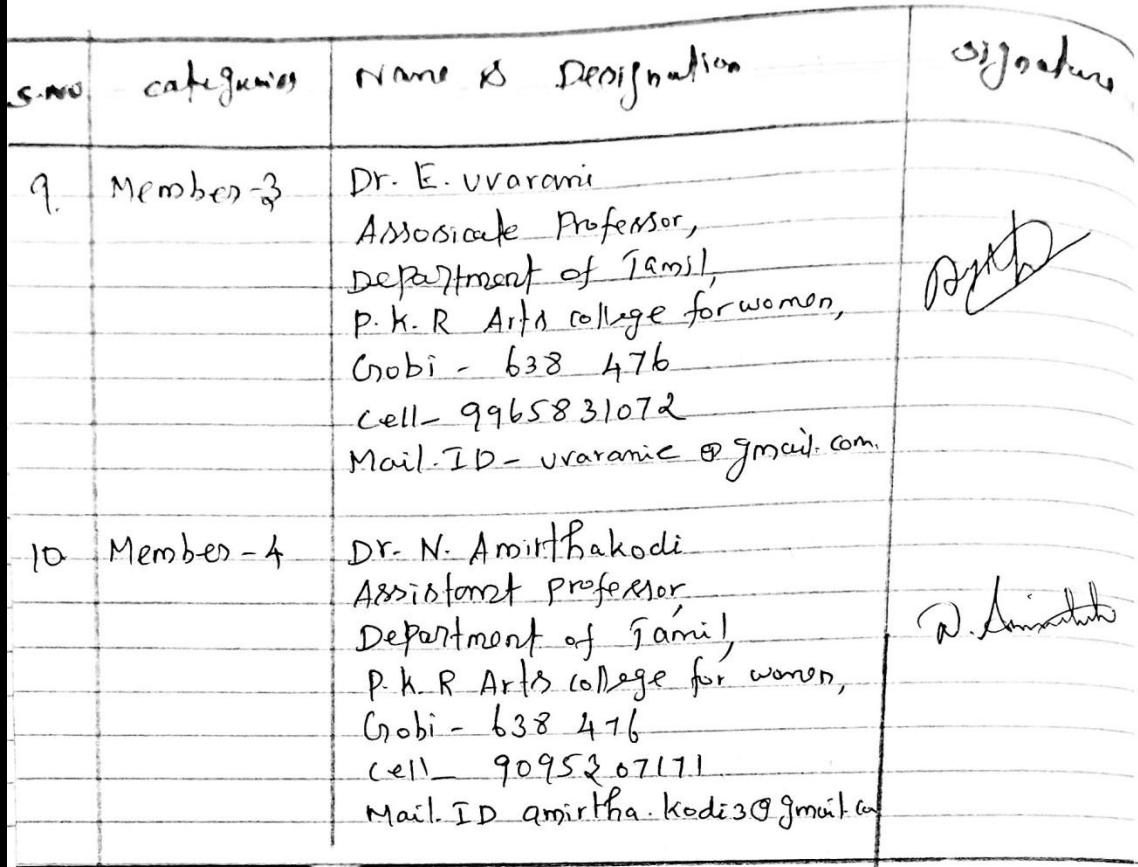 S.NO categories Name & Designation Signature
9. Member-3 Dr. E. Uvarani
Assosicate Professor,
Department of Tamil,
P.K.R Arts college for women,
Gobi - 638 476
Cell- 9965831072
Mail.ID- uvaranie@gmail.com.
10 Member-4 Dr. N. Amirthakodi
Assistant professor,
Department of Tamil,
P.K.R Arts college for women,
Gobi - 638 476
Cell- 9095207171
Mail.ID amirtha.kodi3@gmail.co